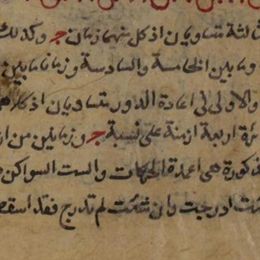 ثلثة متساويان اذ كل منهما زمان ج وكذلك
وما بين الخامسة والسادسة وزمانا ما بين
والاولى الى اعادة الدور متساويان اذ كل
اربعة ازمنة على نسبة ج وزمانين من
مذكورة هى اعمدة الجهات والست السواكن
شئت ادرجت وان شئت لم تدرج فقد اسقط